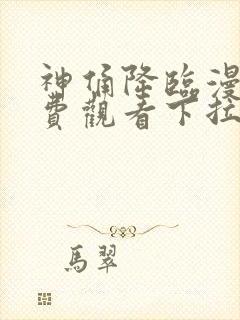 神俑降臨漫
費觀看下拉
馬翠